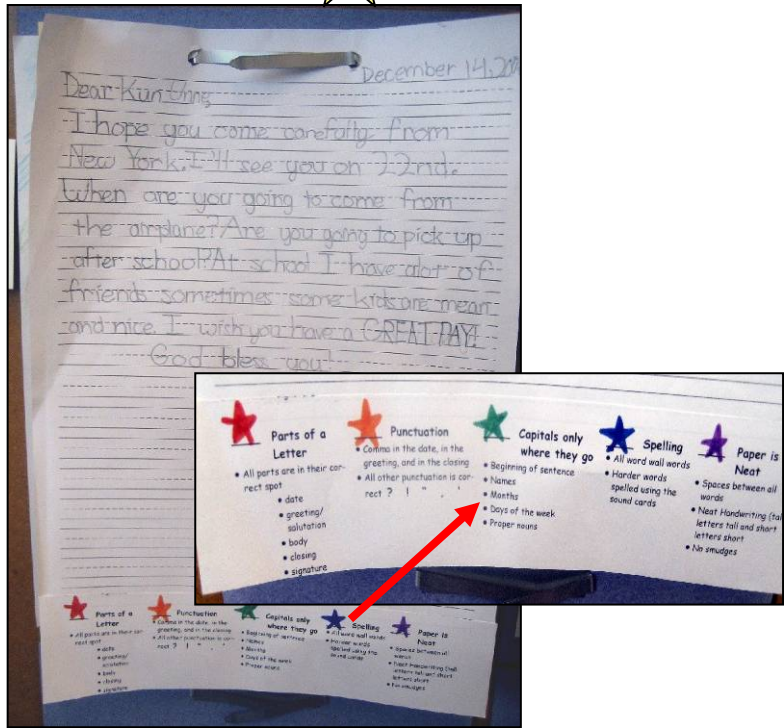 December 14, 20
Dear Kun
I hope you come carefully from
New York. I'll see you on 22nd.
When are you going to come from
the airplane? Are you going to pick up
after school? At school I have alot of
friends sometimes some kids are mean
and nice. I wish you have a GREAT DAY!
God bless you!
Parts of a
Letter
• All parts are in their cor-
rect spot
• date
• greeting/
salutation
• body
• closing
• signature
Punctuation
• Comma in the date, in the
greeting, and in the closing
• All other punctuation is cor-
rect ? ! " . '
Capitals only
where they go
• Beginning of sentence
• Names
• Months
• Days of the week
• Proper nouns
Spelling
• All word wall words
• Harder words
spelled using the
sound cards
Paper is
Neat
• Spaces between all
words
• Neat Handwriting (tall
letters tall and short
letters short
• No smudges
Parts of a
Letter
• All parts are in their cor-
rect spot
• date
• greeting/
salutation
• body
• closing
• signature
Punctuation
• Comma in the date, in the
greeting, and in the closing
• All other punctuation is cor-
rect ? ! " . '
Capitals only
where they go
• Beginning of sentence
• Names
• Months
• Days of the week
• Proper nouns
Spelling
• All word wall words
• Harder words
spelled using the
sound cards
Paper is
Neat
• Spaces between all
words
• Neat Handwriting (tall
letters tall and short
letters short
• No smudges